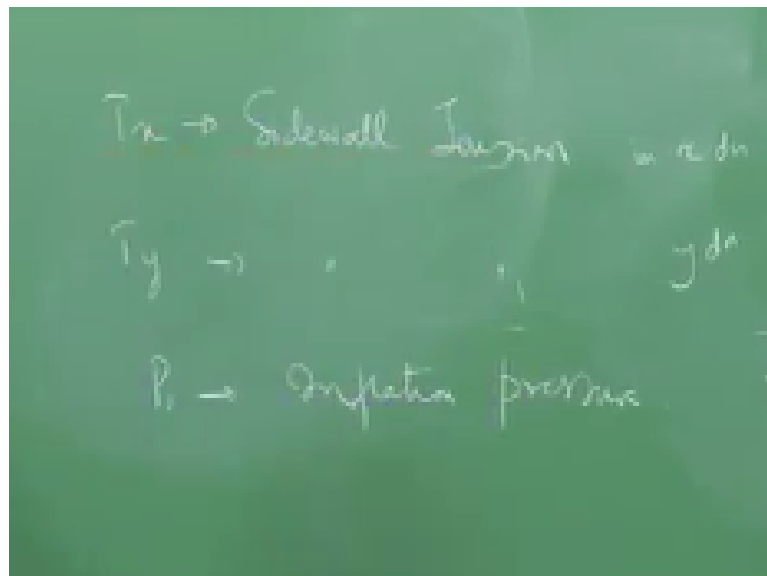 Tx → Sidewall Tension in x dn
Ty → " " y dn
Pi → Inflation pressure